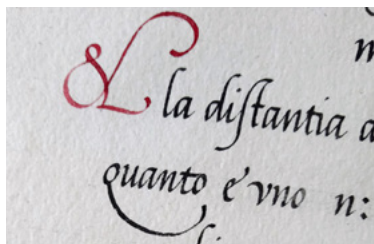 la diſtantia a
quanto e' vno n: